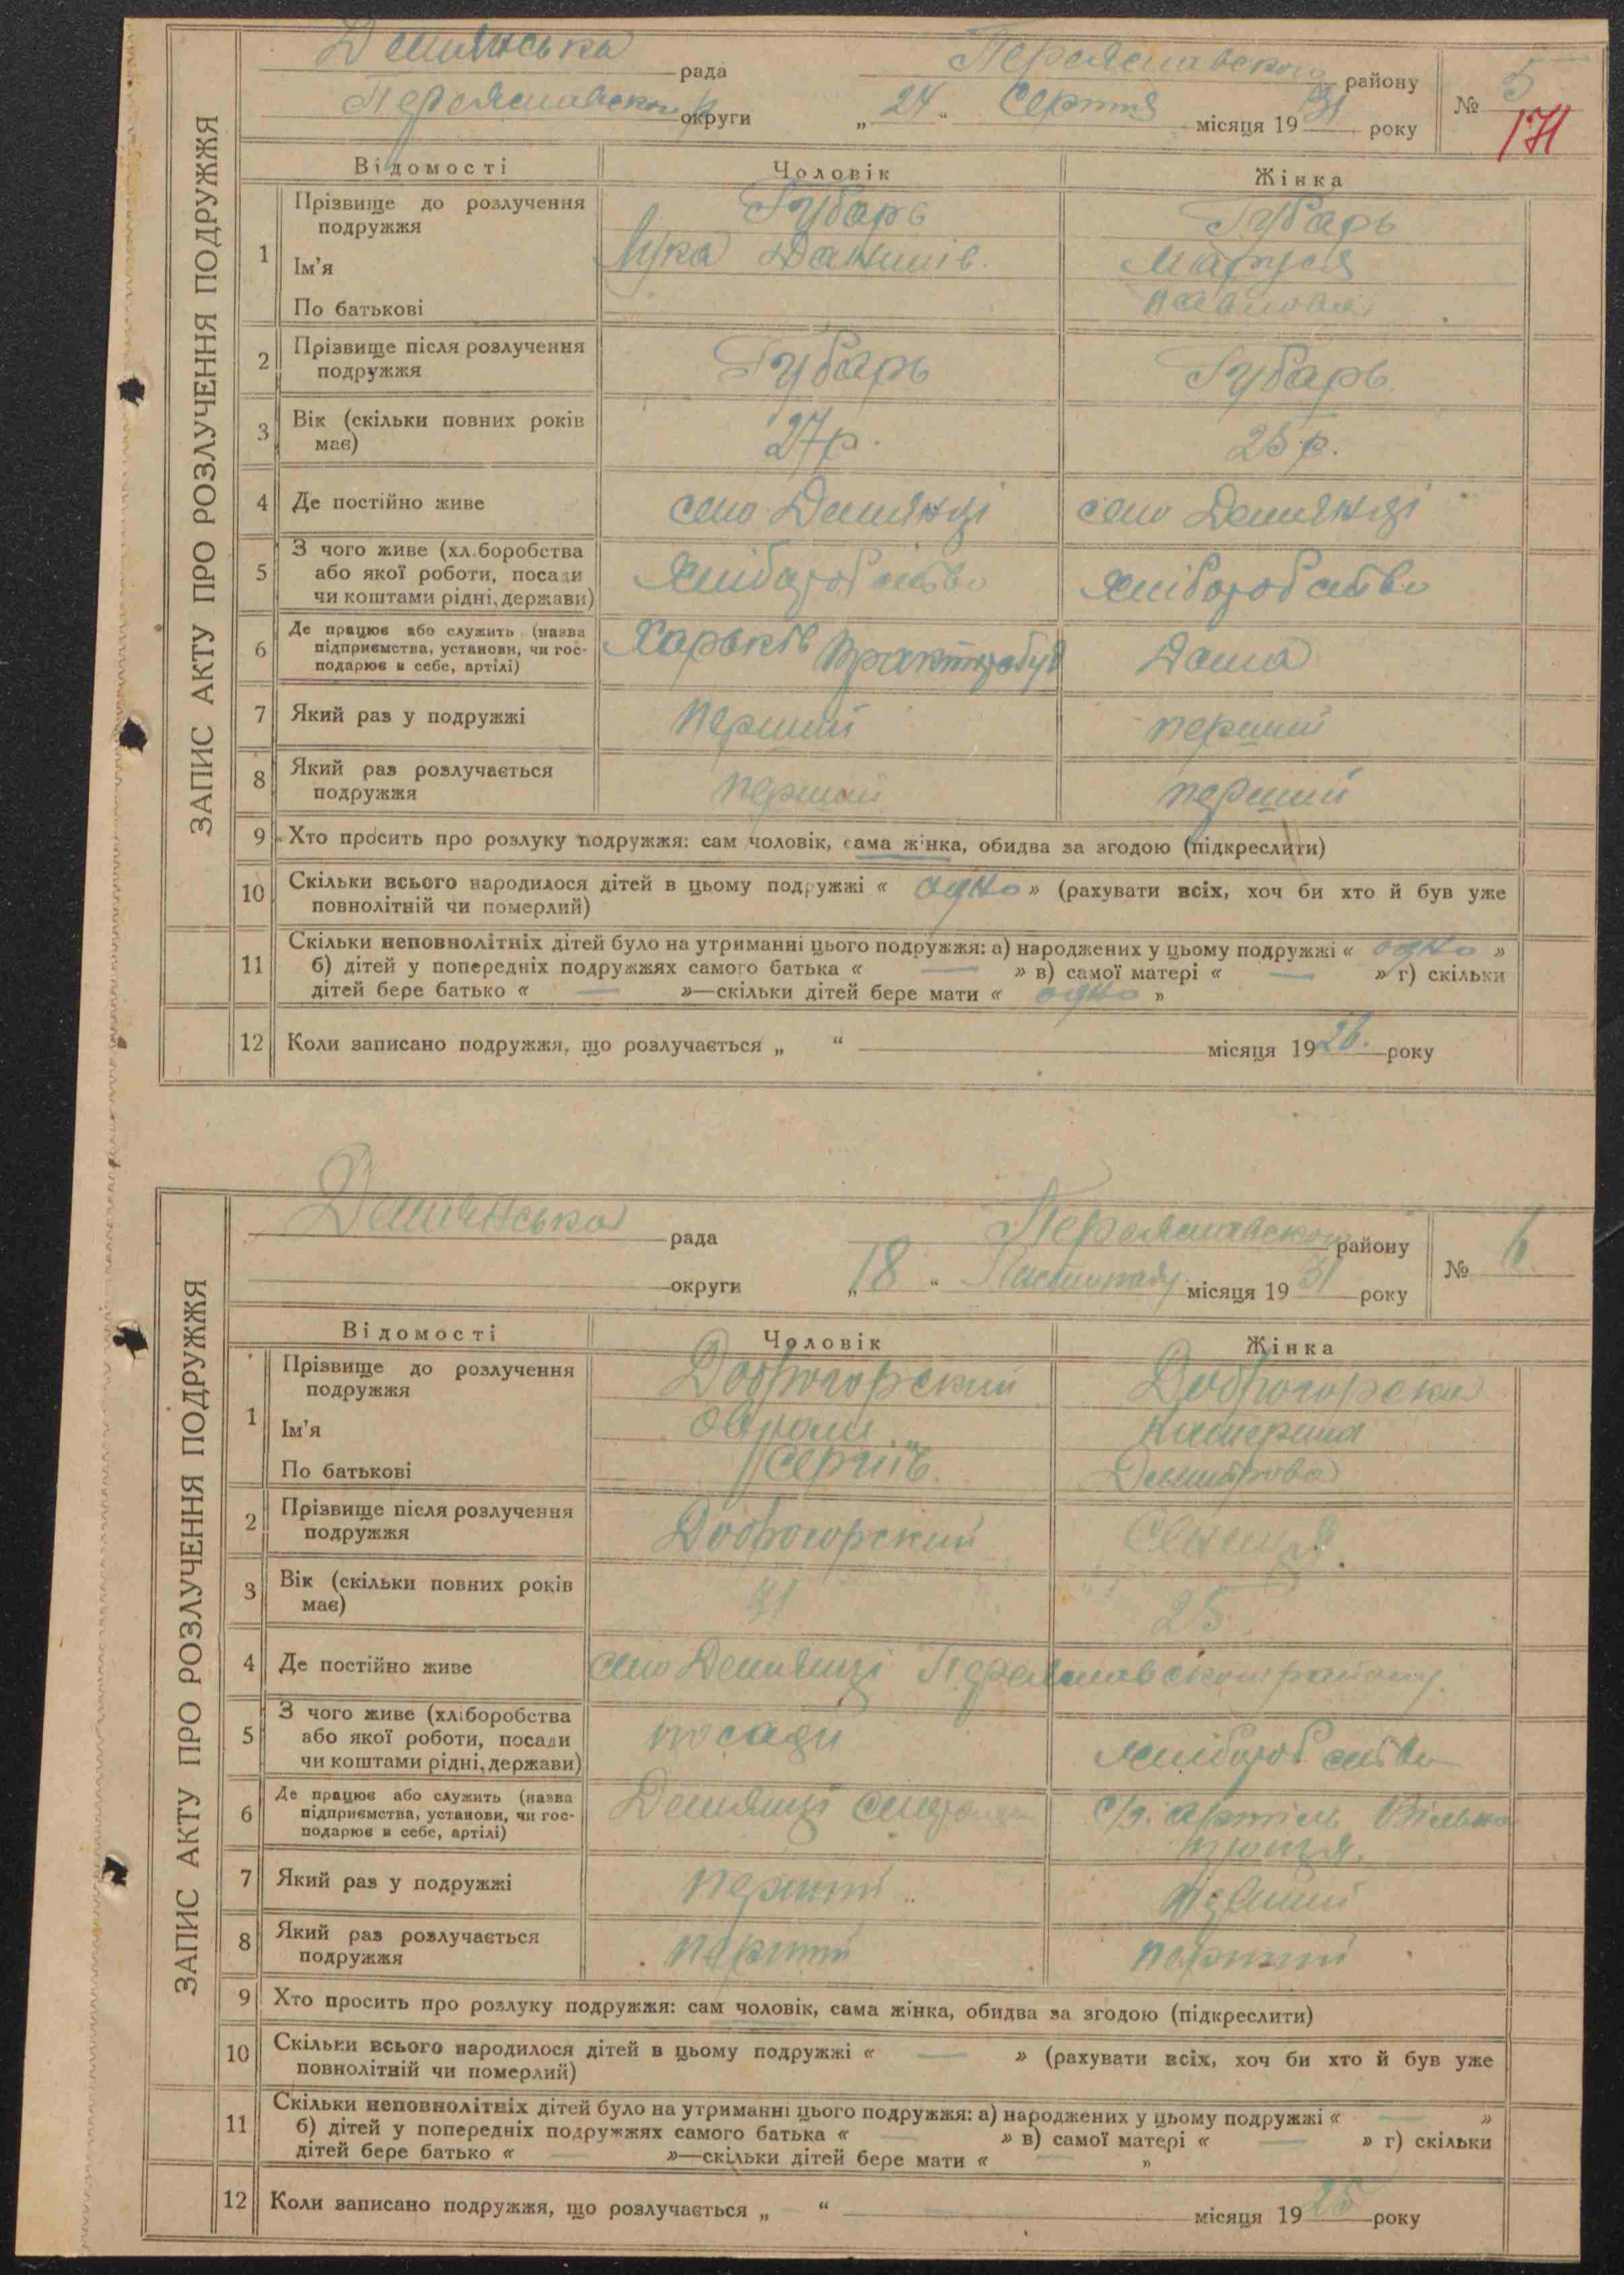 ЗАПИС АКТУ ПРО РОЗЛУЧЕННЯ ПОДРУЖЖЯ
Демянська рада Переяславского району № 5
Переяславского округи „ 24 “ Серпня місяця 19 31 року 171
Відомості Чоловік Жінка
1 Прізвище до розлучення подружжя Губарь Губарь
Ім'я Лука Данилів. Маруся
По батькові Павлова
2 Прізвище після розлучення подружжя Губарь Губарь
3 Вік (скільки повних років має) 27 р. 25 р.
4 Де постійно живе село Демянці село Демянці
5 З чого живе (хліборобства або якої роботи, посади чи коштами рідні, держави) хліборобство хліборобство
6 Де працює або служить (назва підприємства, установи, чи господарює в себе, артілі) Харьків Дома
7 Який раз у подружжі перший перший
8 Який раз розлучається подружжя перший перший
9 Хто просить про розлуку подружжя: сам чоловік, сама жінка, обидва за згодою (підкреслити)
10 Скільки всього народилося дітей в цьому подружжі « одно » (рахувати всіх, хоч би хто й був уже
повнолітній чи померлий)
11 Скільки неповнолітніх дітей було на утриманні цього подружжя: а) народжених у цьому подружжі « одно »
б) дітей у попередніх подружжях самого батька « — » в) самої матері « — » г) скільки
дітей бере батько « — »—скільки дітей бере мати « одно »
12 Коли записано подружжя, що розлучається „ “ місяця 19 26. року
ЗАПИС АКТУ ПРО РОЗЛУЧЕННЯ ПОДРУЖЖЯ
Демянська рада Переяславского району № 6
округи „ 18 “ Листопаду місяця 19 31 року
Відомості Чоловік Жінка
1 Прізвище до розлучення подружжя Доброгорский Доброгорска
Ім'я Катерина
По батькові Сергіїв. Демитрова
2 Прізвище після розлучення подружжя Доброгорский
3 Вік (скільки повних років має) 31 25
4 Де постійно живе село Демянці Переяславского району.
5 З чого живе (хліборобства або якої роботи, посади чи коштами рідні, держави) посади хліборобство
6 Де працює або служить (назва підприємства, установи, чи господарює в себе, артілі) Демянці с/г. артіль Вільна
7 Який раз у подружжі перший перший
8 Який раз розлучається подружжя перший перший
9 Хто просить про розлуку подружжя: сам чоловік, сама жінка, обидва за згодою (підкреслити)
10 Скільки всього народилося дітей в цьому подружжі « — » (рахувати всіх, хоч би хто й був уже
повнолітній чи померлий)
11 Скільки неповнолітніх дітей було на утриманні цього подружжя: а) народжених у цьому подружжі « — »
б) дітей у попередніх подружжях самого батька « — » в) самої матері « — » г) скільки
дітей бере батько « — »—скільки дітей бере мати « — »
12 Коли записано подружжя, що розлучається „ — “ — місяця 19 25 року